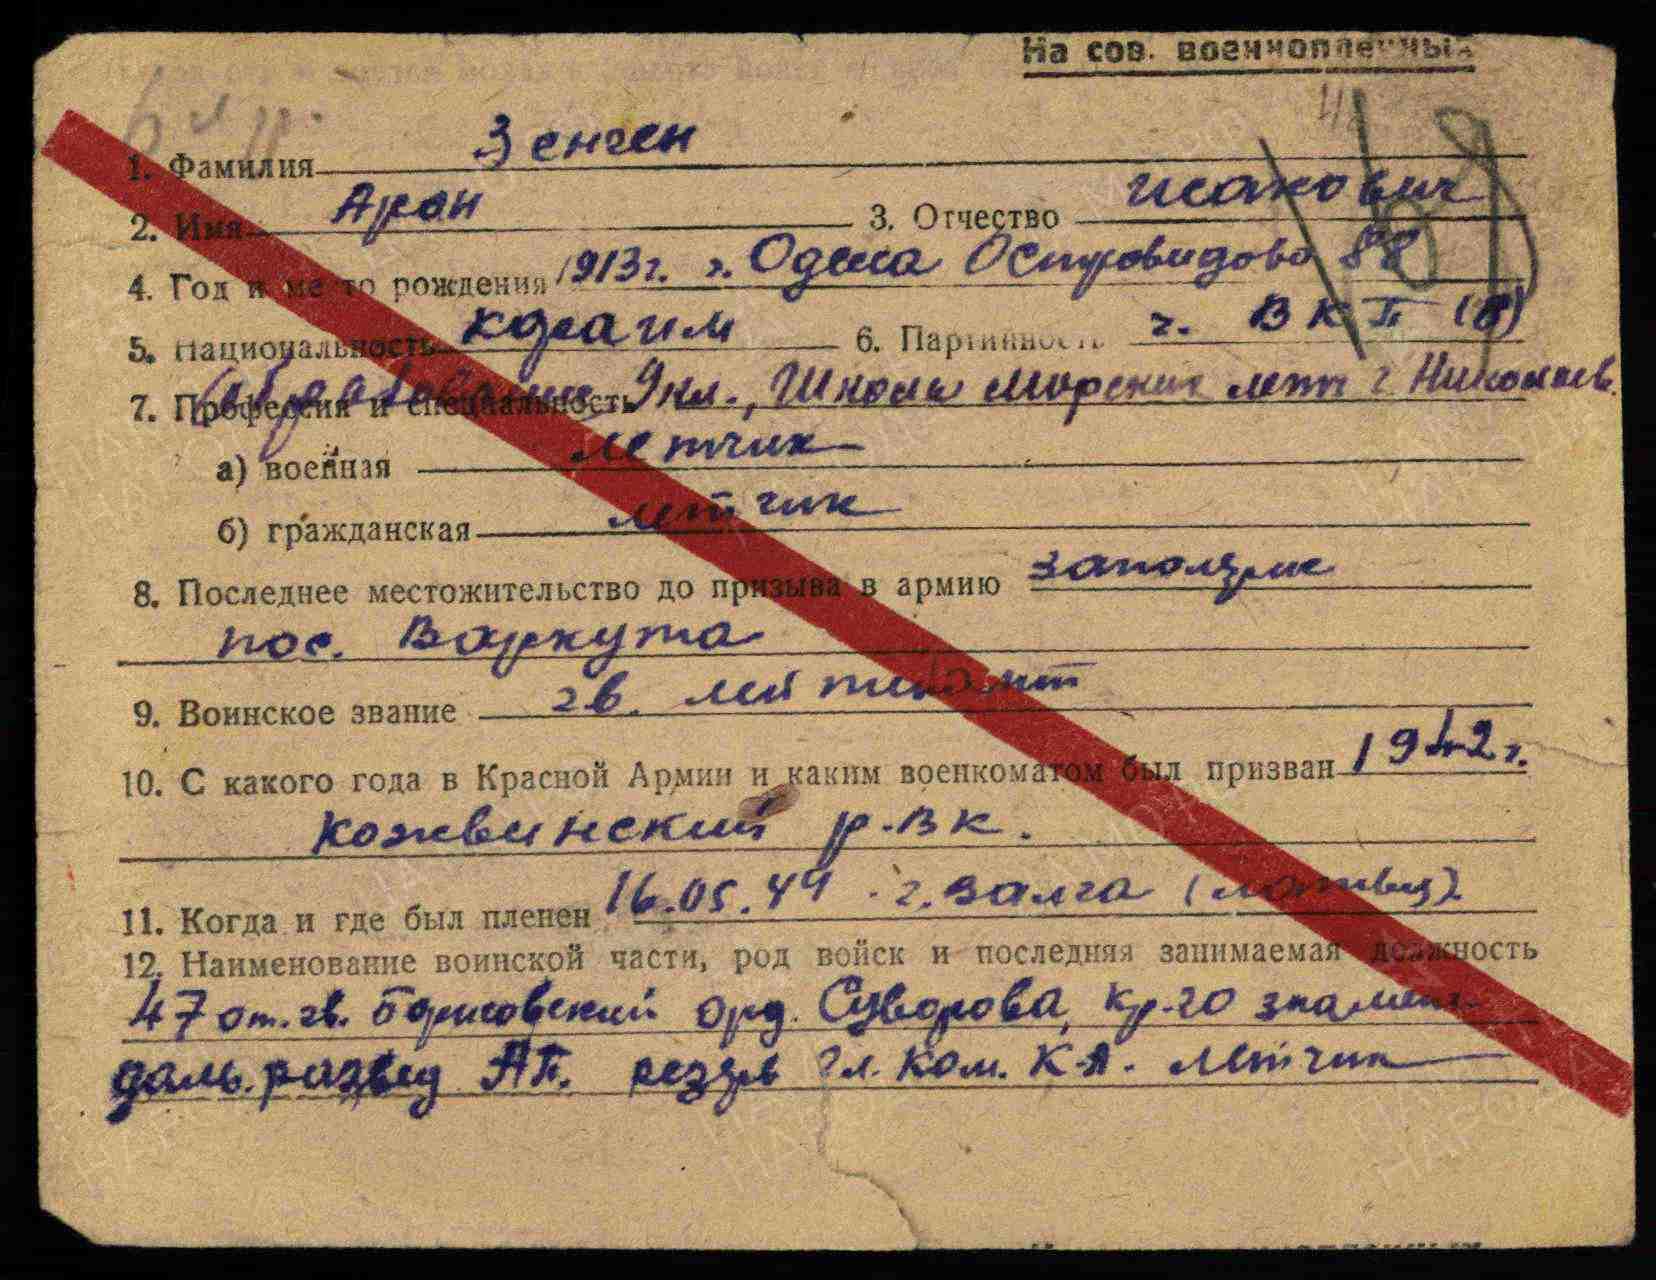 На сов. военнопленных
1. Фамилия Зенген
2. Имя Арон 3. Отчество Исакович
4. Год и место рождения 1913 г. г. Одесса Островидово 88
5. Национальность караим 6. Партийность ч. ВКП(б)
7. Профессия и специальность образование 9 кл., Школа морских летч г. Николаев.
а) военная летчик
б) гражданская летчик
8. Последнее местожительство до призыва в армию заполярие
пос. Варкута
9. Воинское звание гв. лейтенант
10. С какого года в Красной Армии и каким военкоматом был призван 1942 г.
Кожвинский р.вк.
11. Когда и где был пленен 16.05.44 г. Валга (латвия).
12. Наименование воинской части, род войск и последняя занимаемая должность
47 от. гв. Борисовский орд. Суворова, кр-го знамени
даль. развед АП. резерв гл. ком. К-А. летчик